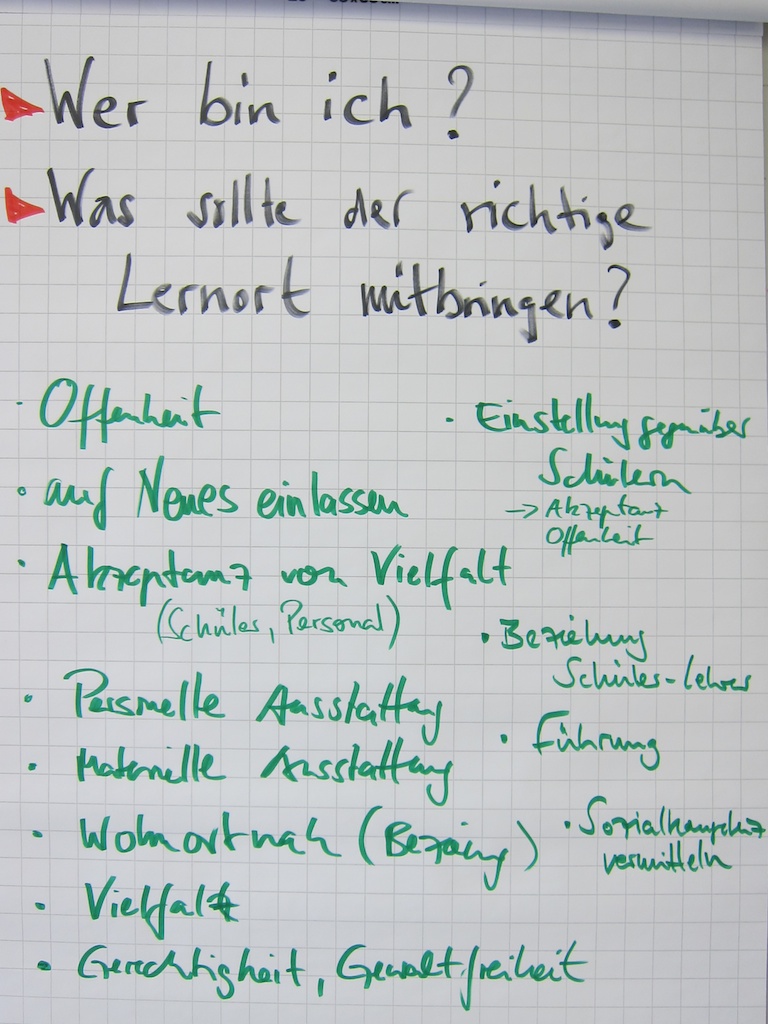 Wer bin ich?
Was sollte der richtige
Lernort mitbringen?
· Offenheit
· auf Neues einlassen
· Akzeptanz von Vielfalt
(Schüler, Personal)
· Personelle Ausstattung
· Materielle Ausstattung
· Wohnortnah
· Vielfalt
· Gerechtigkeit, Gewaltfreiheit
· Einstellung gegenüber
Schülern
→ Akzeptanz
Offenheit
· Beziehung
Schüler-Lehrer
· Führung
· Sozialkompetenz
vermitteln